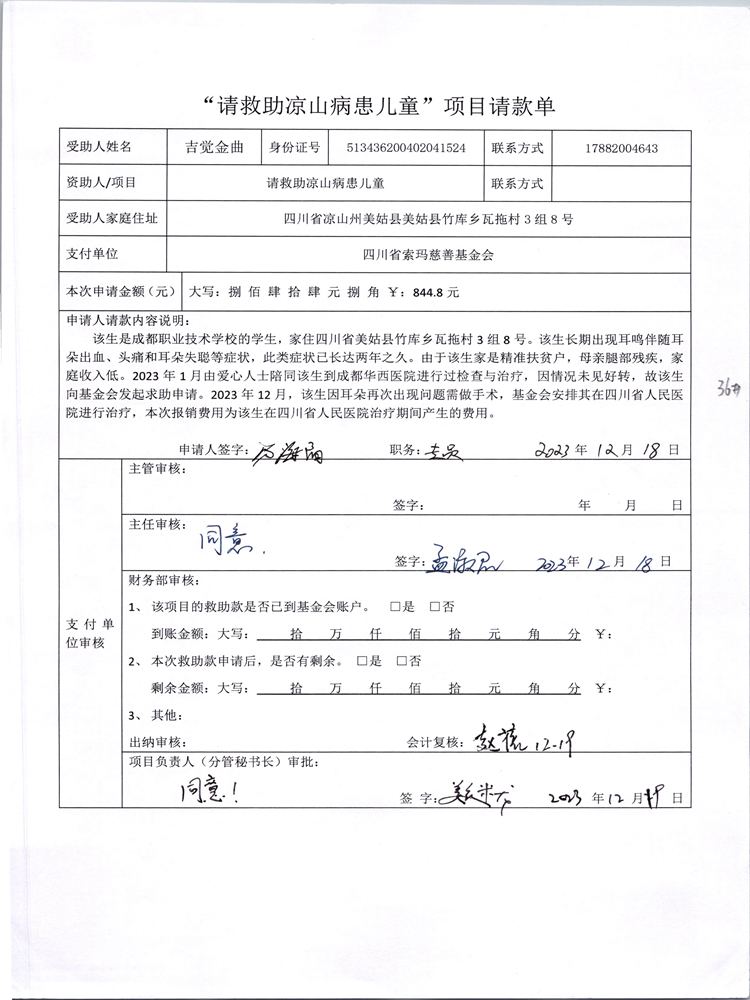 “请救助凉山病患儿童”项目请款单
受助人姓名 吉觉金曲 身份证号 513436200402041524 联系方式 17882004643
资助人/项目 请救助凉山病患儿童 联系方式
受助人家庭住址 四川省凉山州美姑县美姑县竹库乡瓦拖村3组8号
支付单位 四川省索玛慈善基金会
本次申请金额（元） 大写：捌 佰 肆 拾 肆 元 捌 角 ￥：844.8 元
申请人请款内容说明：
该生是成都职业技术学校的学生，家住四川省美姑县竹库乡瓦拖村3组8号。该生长期出现耳鸣伴随耳
朵出血、头痛和耳朵失聪等症状，此类症状已长达两年之久。由于该生家是精准扶贫户，母亲腿部残疾，家
庭收入低。2023年1月由爱心人士陪同该生到成都华西医院进行过检查与治疗，因情况未见好转，故该生
向基金会发起求助申请。2023年12月，该生因耳朵再次出现问题需做手术，基金会安排其在四川省人民医
院进行治疗，本次报销费用为该生在四川省人民医院治疗期间产生的费用。
36#
申请人签字： 职务：专员 2023年12月18日
支付单位审核
主管审核：
签字： 年 月 日
主任审核：
同意.
签字：孟淑君 2023年12月18日
财务部审核：
1、 该项目的救助款是否已到基金会账户。 □是 □否
到账金额：大写： 拾 万 仟 佰 拾 元 角 分 ￥：
2、 本次救助款申请后，是否有剩余。 □是 □否
剩余金额：大写： 拾 万 仟 佰 拾 元 角 分 ￥：
3、 其他：
出纳审核： 会计复核： 12-19
项目负责人（分管秘书长）审批：
同意！
签 字： 2023年12月19日